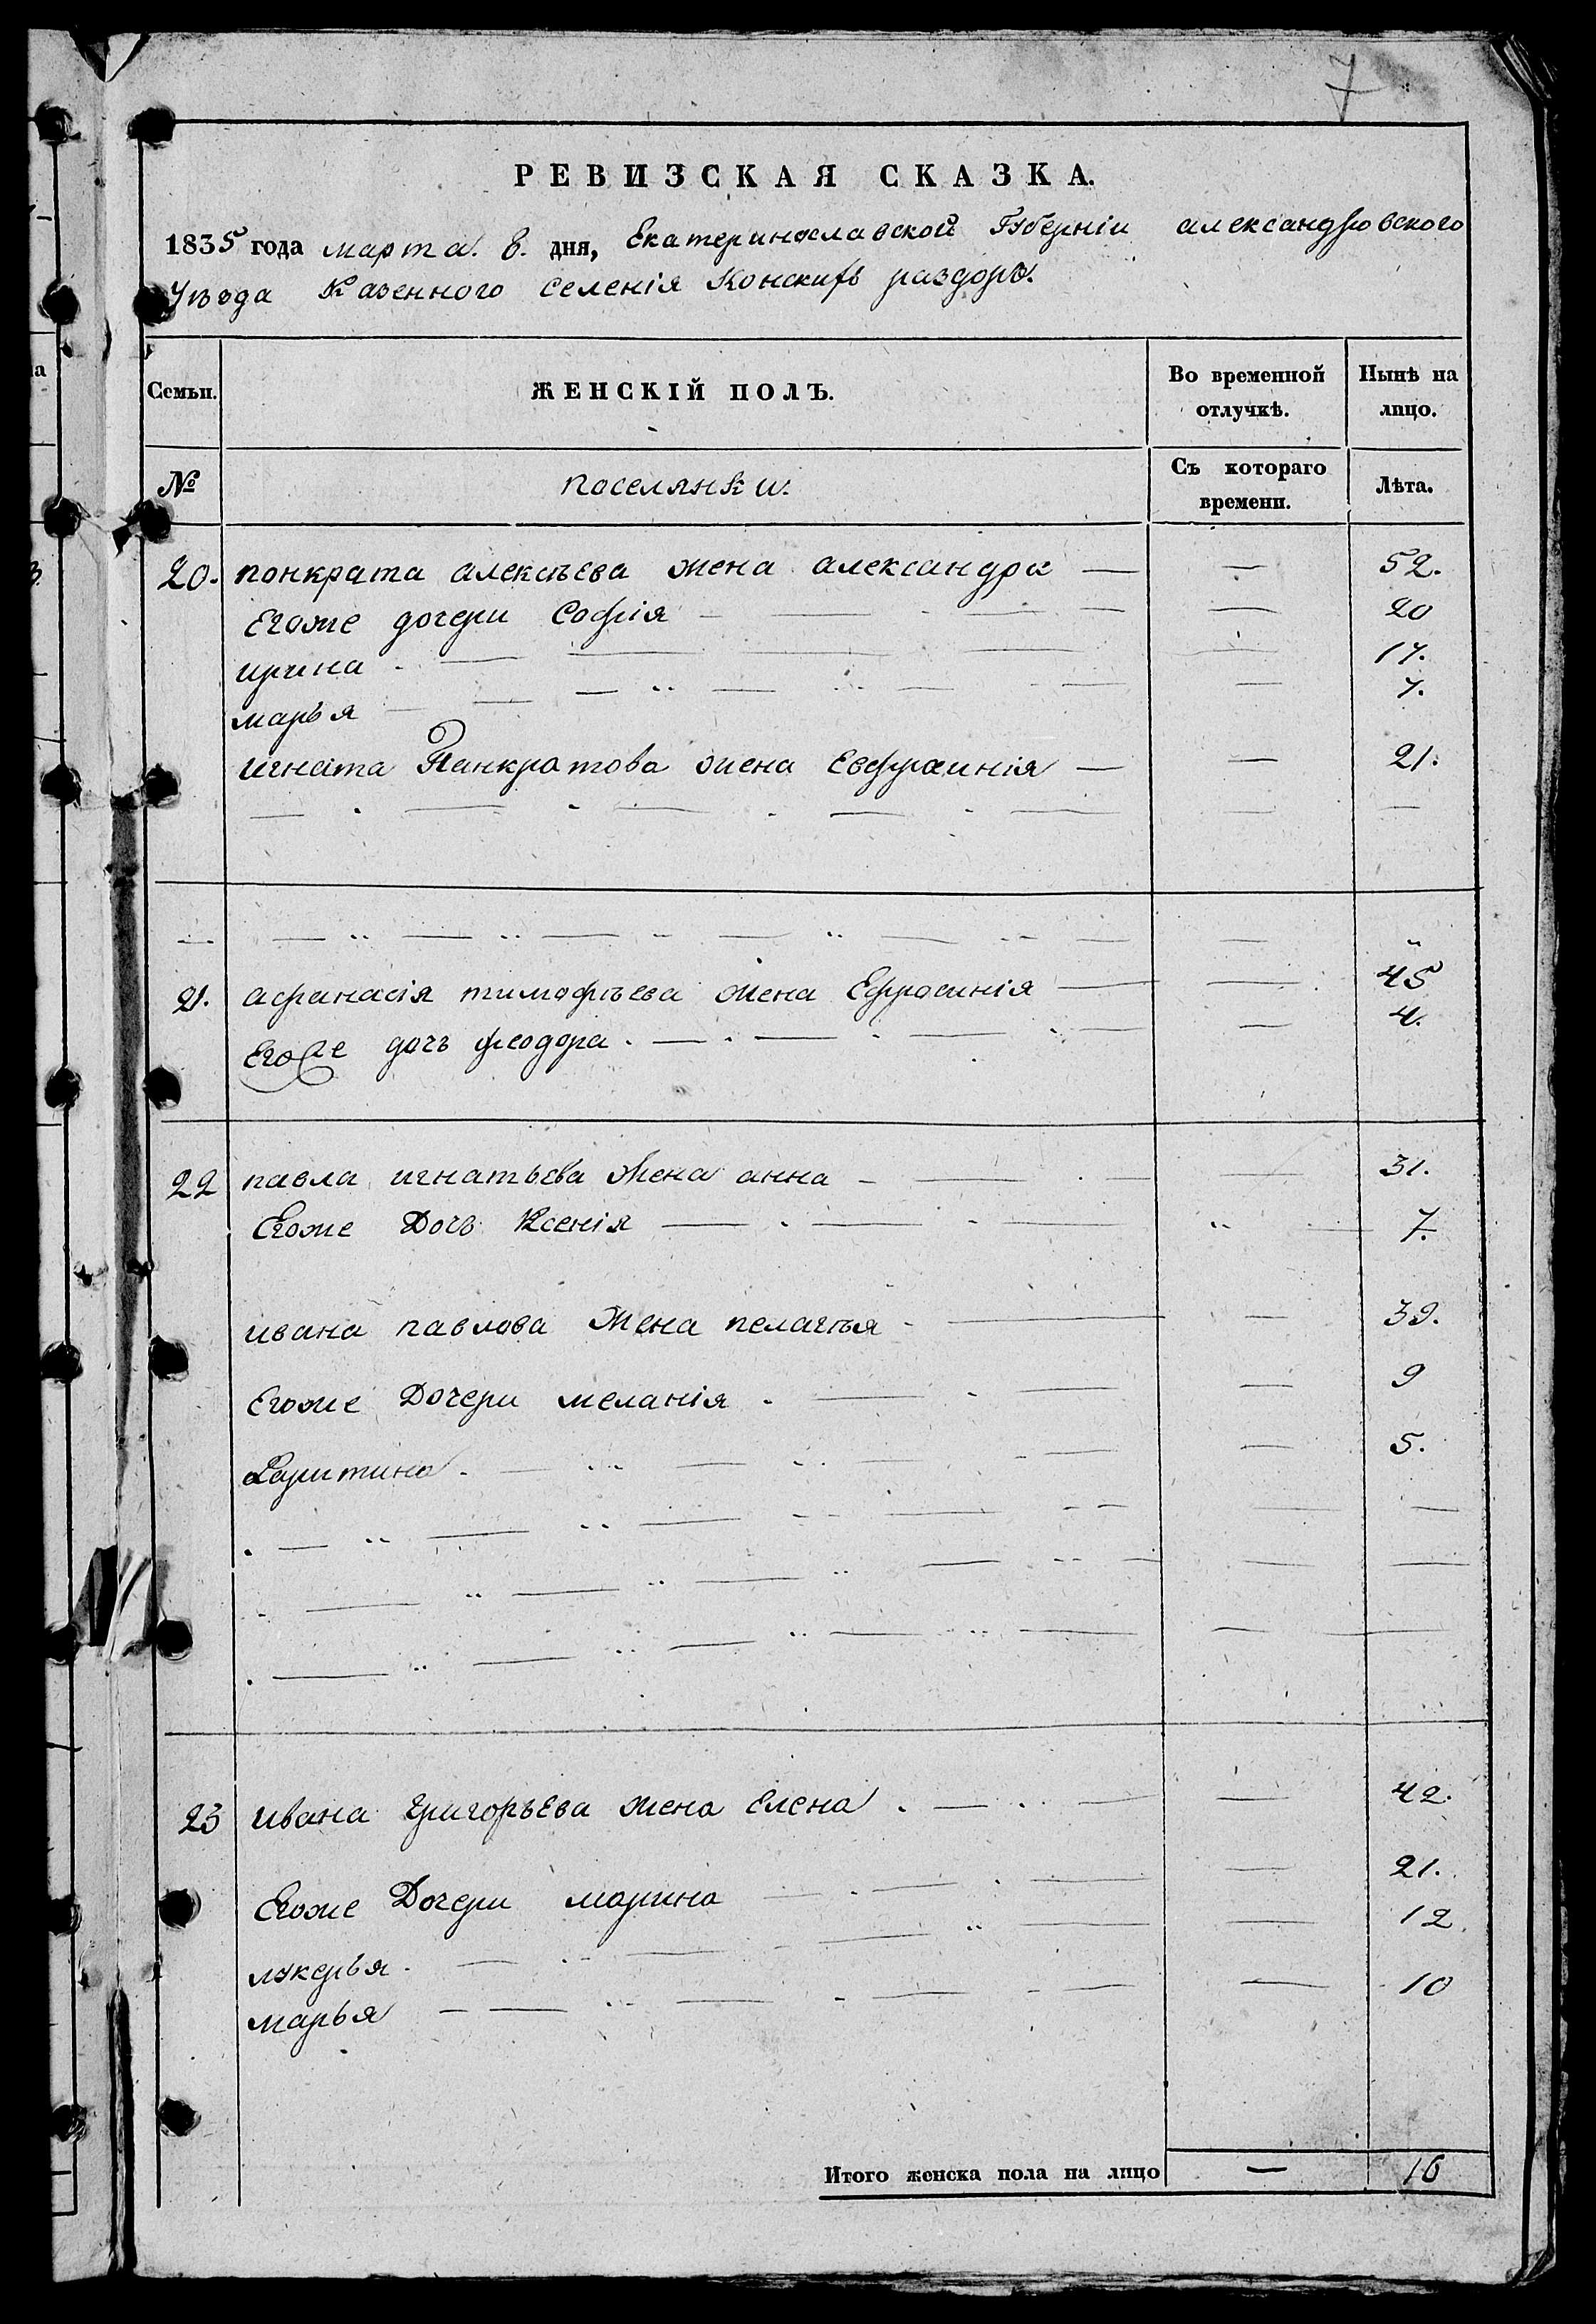 7
РЕВИЗСКАЯ СКАЗКА.
1835 года марта. 8. дня, Екатеринославской Губерніи александровского
Уѣзда Казенного селенія Конскихъ раздоръ.
Семьи. ЖЕНСКІЙ ПОЛЪ. Во временной отлучкѣ. Нынѣ на лицо.
№ поселянки. Съ котораго времени. Лѣта.
20. понкрата алексѣева жена александра — — 52.
Егоже дочери Софія — — 20
ирина — — 17.
марья — — 7.
игната Панкратова жена Евфросинія — — 21.
21. афанасія тимофѣева жена Ефросинія — — 45
Егоже дочь феодора — — 4.
22 павла игнатьева жена анна — — 31.
Егоже Дочь Ксенія — — 7.
ивана павлова жена пелагѣя — — 39.
Егоже Дочери меланія — — 9
Харитина — — 5.
23 ивана григорьева жена елена — — 42.
Егоже Дочери марина — — 21.
лукерья — — 12.
марья — — 10
Итого женска пола на лицо — 16